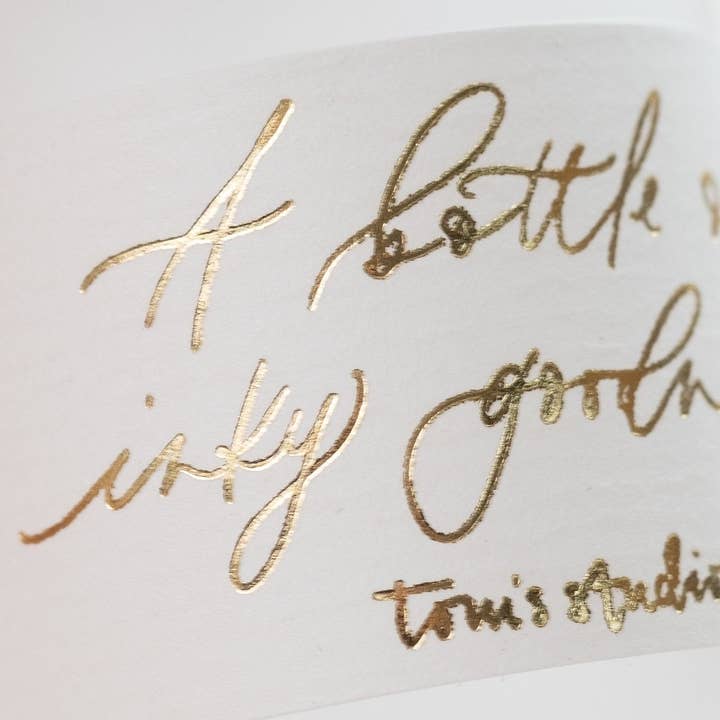 A bottle
inky goodn
tom's studio